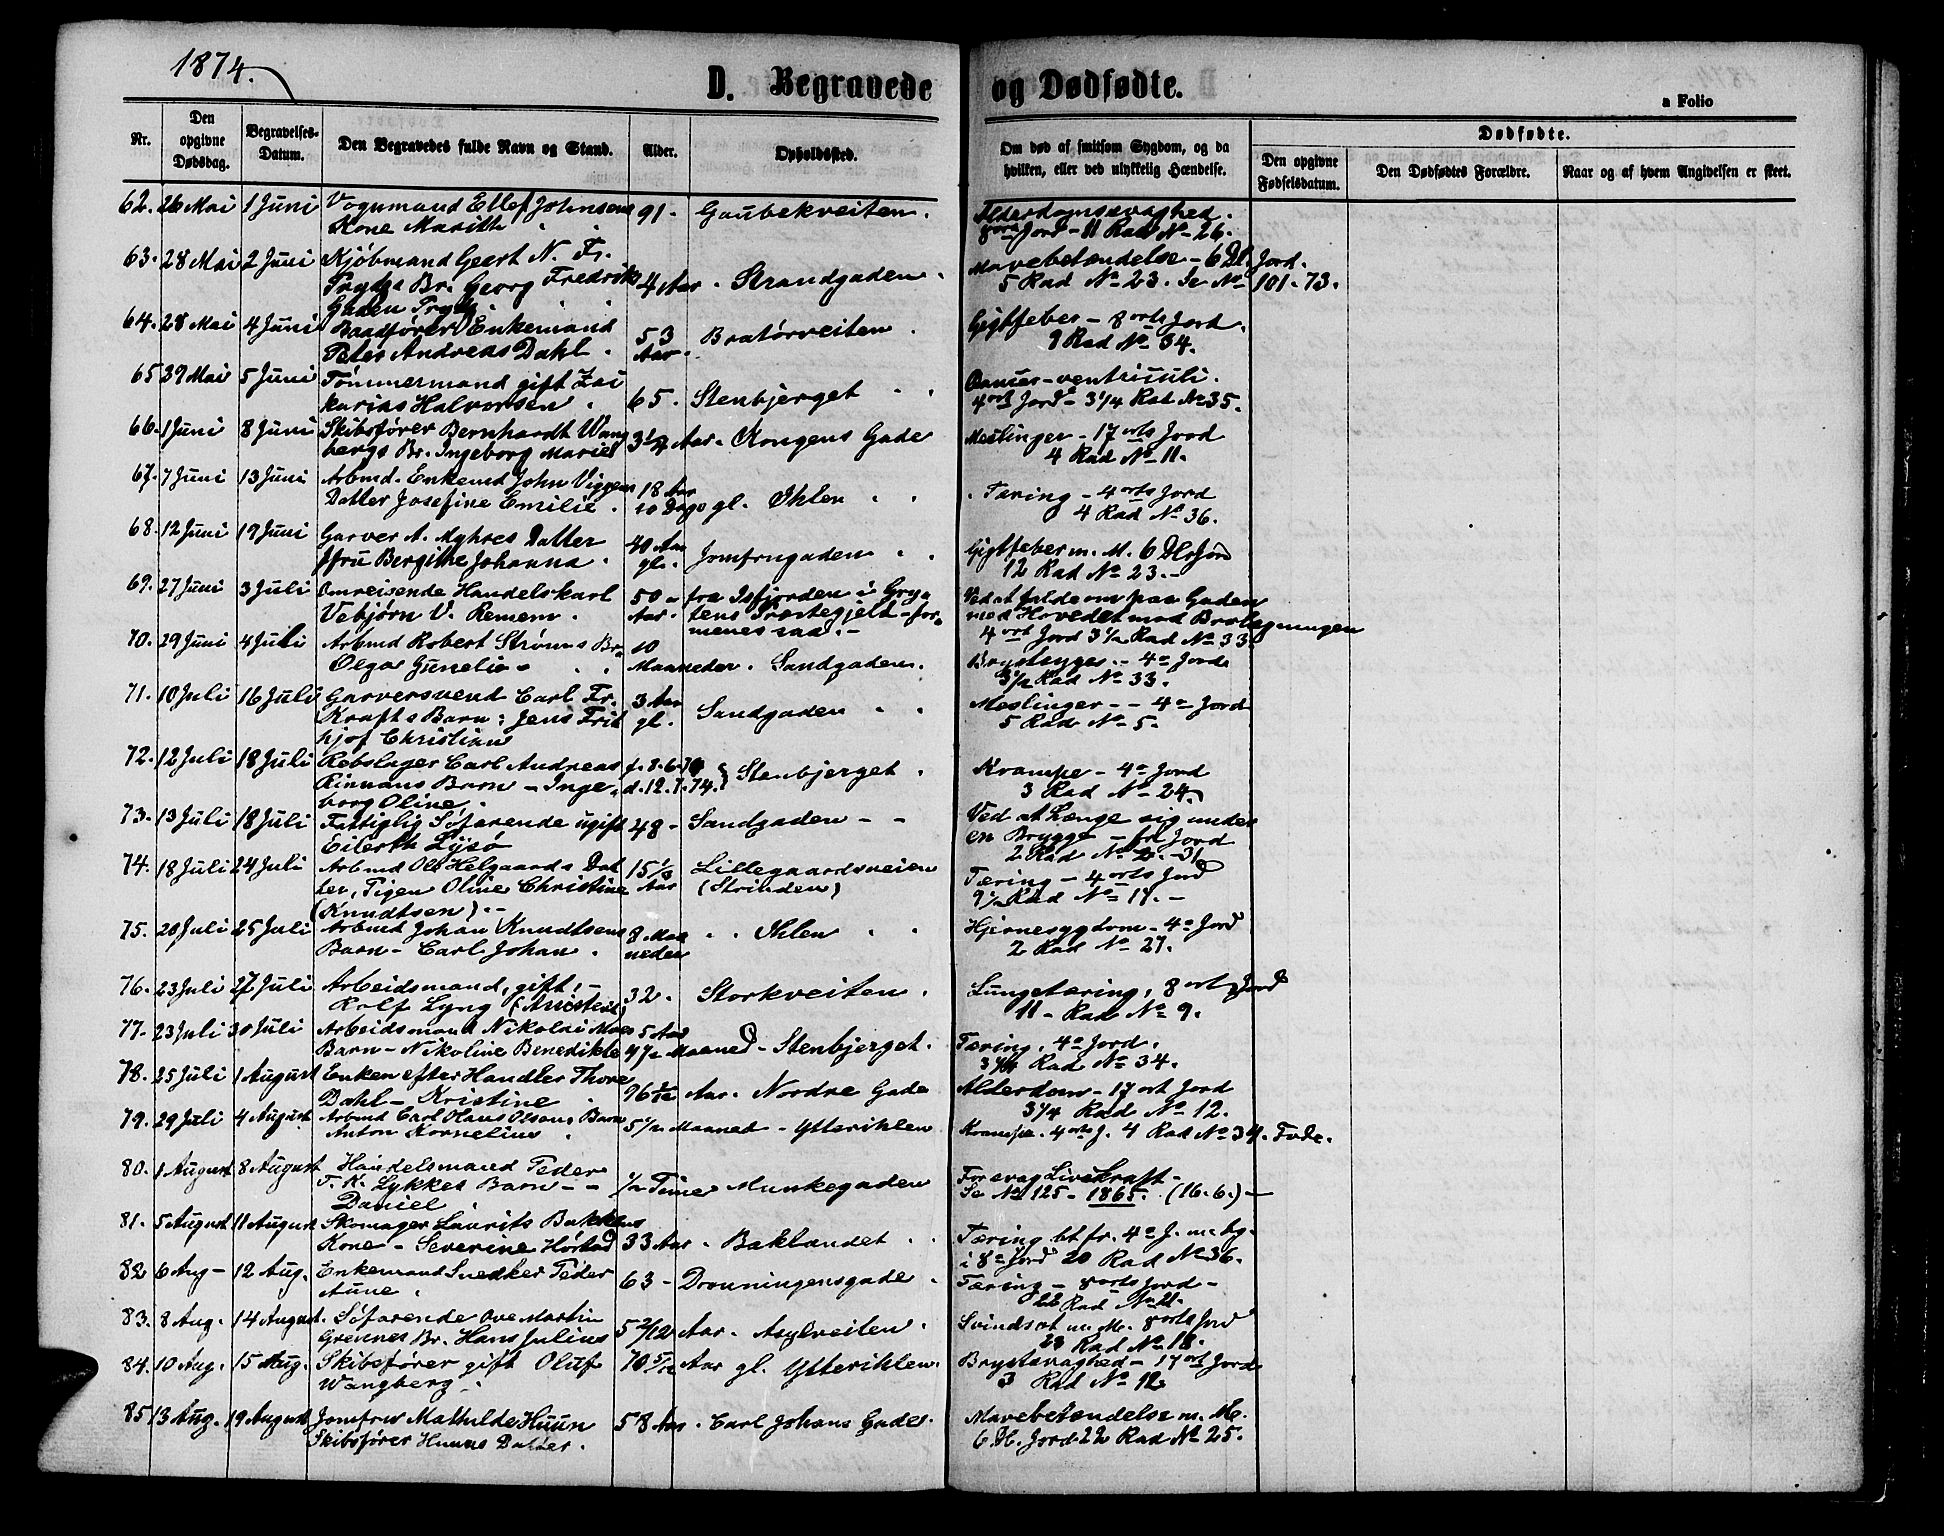 1874.
D. Begravede og Dødfødte.
a Folio
Nr.
Den opgivne Dødsdag.
Begravelses-Datum.
Den Begravedes fulde Navn og Stand.
Alder.
Opholdssted.
Om død af smitsom Sygdom, og da hvilken, eller ved ulykkelig Hændelse.
Dødfødte.
Den opgivne Fødselsdatum.
Den Dødfødtes Forældre.
Naar og af hvem Angivelsen er skeet.
62. 26 Mai 1 Juni Vognmand Ellef Johnsens 91 - Gaubekveiten. Alderdomssvaghed.
Kone Marith 8 orts Jord - 11 Rad No - 26.
63. 28 Mai 2 Juni Kjøbmand Geert N. Fr. Mavebetændelse - 6 Dl. Jord.
Trydes Br. Georg Fredrik 4 Aar. Strandgaden. 5 Rad No 23. Se No 101 - 73.
Gaden Tryde.
64. 28 Mai 4 Juni Baadfører Enkemand 53 Bratørveiten. Gigtfeber - 8 orts Jord.
Peter Andreas Dahl. Aar. 9 Rad No 34.
65 29 Mai 5 Juni Tømmermand gift Zai Cancer-ventriculi.
karias Halvorsen. 65. Stenbjerget 4 ort Jord - 3 1/4 Rad No 35.
66. 1 Juni 8 Juni Skibsfører Bernhardt Wang Meslinger - 17 orts Jord
bergs Br. Ingeborg Marie 3 1/2 Aar. Kongens Gade 4 Rad No 11.
67. 7 Juni 13 Juni Arbmd. Enkemd John Viggens 18 Aar Tæring - 4 orts Jord
Datter Josefine Emilie. 10 Dage gl. Ihlen 4 Rad No 36.
68. 12 Juni 19 Juni Garver A. Myhres Datter 40 Aar Gigtfeber m. M. 6 Dlr Jord
Jfru Bergithe Johanna. gl. Jomfrugaden 12 Rad No 23. -
69. 27 Juni 3 Juli Omreisende Handelskarl 50 - fra Isfjorden i Gry- Ved at falde om paa Gaden
Vebjørn V. Remem. Aar. tens Præstegjeld - for- med Hovedet mod Brolægningen
menes saa. - 4 ort Jord 3 1/2 Rad No 33.
70. 29 Juni 4 Juli Arbmd Robert Strøms Br. 10 Brystsyge. - 4 o Jord
Olga Gunelia - Maaneder. Sandgaden. 3 1/2 Rad No 33.
71. 10 Juli 16 Juli Garversvend Carl Fr. 3 Aar Meslinger - - 4 o Jord
Krafts Barn: Jens Frit gl. Sandgaden 5 Rad No 5.
hjof Christian
72. 12 Juli 18 Juli Rebslager Carl Andreas f. 8.6.70 Krampe - 4 o Jord
Rinnans Barn - Inge- d. 12.7.74. Stenbjerget. 3 Rad No 24.
borg Oline.
73. 13 Juli 18 Juli Fattiglig Søfarende ugift 48 - Sandgaden - - Ved at hænge sig under
Eilerth Lysø en Brygge - fri Jord
2 Rad No 31
74. 18 Juli 24 Juli Arbmd Ole Helgaards Dat 15 1/2 Lillegaardsveien
ter, Pigen Oline Christine Aar (Strinden) Tæring - 4 orts Jord
(Knudtsen). - 9 1/2 Rad No 19. -
75. 20 Juli 25 Juli Arbmd Johan Knudtsens 8 Maa Ihlen Hjernesygdom - 4 o Jord
Barn - Carl Johan. neder 2 Rad No 27.
76. 23 Juli 27 Juli Arbeidsmand, gift, - Lungetæring, 8 ort Jord
Rolf Lyng 32. Storkveiten. 11 - Rad No 9.
77. 23 Juli 30 Juli Arbeidsmand Nikolai Moes 5 Aar Tæring. 4 o Jord.
Barn - Nikoline Benedikte 4 1/2 Maaned - Stenbjerget. 3 1/4 Rad No 34.
78. 25 Juli 1 August Enken efter Handler Thore Alderdom - 17 ort Jord
Dahl - Kristine 76 Aar. Nordre Gade 3 1/4 Rad No 12.
79. 29 Juli 4 August Arbmd Carl Hans Olsens Barn 5 1/2 Maaned - Ytterihlen
Anton Kornelius Krampe. 4 orts J. 4 Rad No 34. Fode.
80. 1 August 8 August Handelsmand Peder For svag Livskraft -
T. K. Lykkes Barn - - 1/2 Time Munkegaden Se No 125 - 1865. (16.6.) -
Daniel
81. 5 August 11 August Skomager Laurits Bakkens Tæring bt fr. 4 o J. m. bg.
Kone - Severine Hørstad 33 Aar. Baklandet i 8 o Jord 20 Rad No 36.
82 6 Aug - 12 Aug. Enkemand Snedker Peder 63 - Dronningensgade Tæring - 8 orts Jord -
Aune. 22 Rad No 21.
83. 8 Aug. 14 August. Søfarende Ove Martin Svindsot m. M. 8 orts Jord
Grevnes Br. Hans Julius 5 2/12 Aar. Asylveiten. 23 Rad No 18.
84. 10 Aug. 15 Aug. Skibsfører gift Oluf 70 5/12 Aar gl. Ytterihlen. Brystsvaghed - 17 ort Jord
Wangberg. 3 Rad No 12
85 13 Aug. 19 August Jomfru Mathilde Huun 58 Aar. Carl Johans Gade. Mavebetændelse m. M.
Skibsfører Huuns Datter. 6 Dl. Jord 22 Rad No 25.